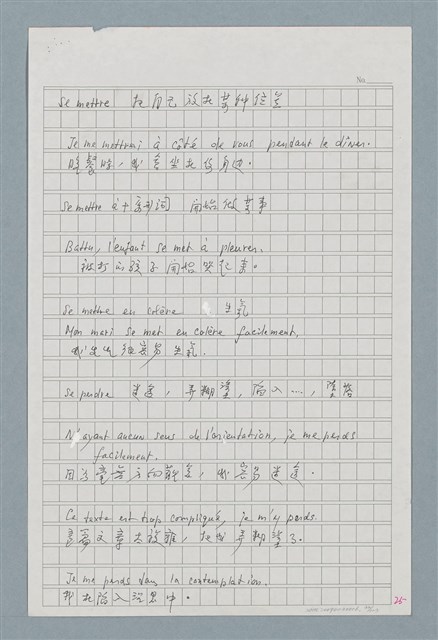 No.
Se mettre 把自己放在某种位置
Je me mettrai à côté de vous pendant le dîner.
晚餐时,我会坐在你身边。
Se mettre à + 原形词 開始做某事
Battu, l'enfant se met à pleurer.
被打的孩子開始哭起来。
Se mettre en colère 生氣
Mon mari se met en colère facilement.
我丈夫很容易生氣.
Se perdre 迷途, 弄糊塗, 陷入...,
N'ayant aucun sens de l'orientation, je me perds
facilement.
因为毫無方向感, 我容易迷途.
Ce texte est trop compliqué, je m'y perds.
這篇文章太複雜, 把我弄糊塗了.
Je me perds dans la contemplation.
我在陷入沉思中.
25